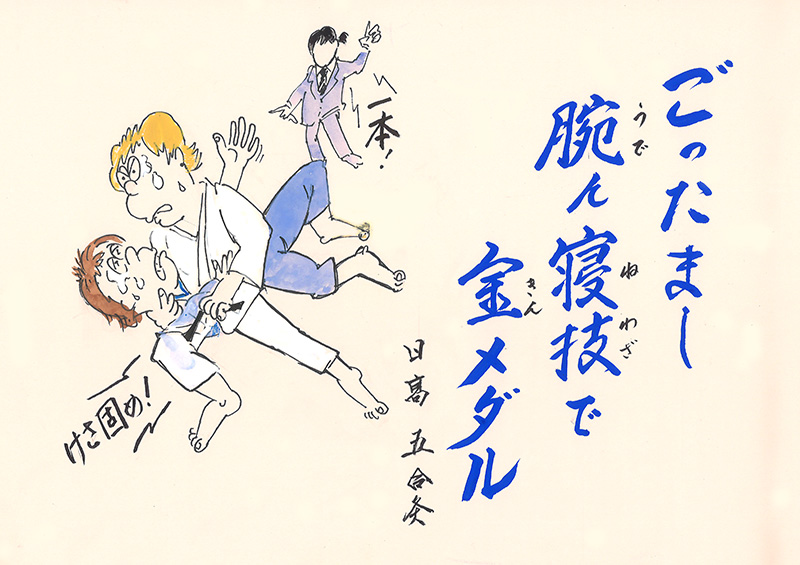 ごったまし
うで ねわざ
腕ん寝技で
きん
金メダル
日高 五合灸
一本!
けさ固め!